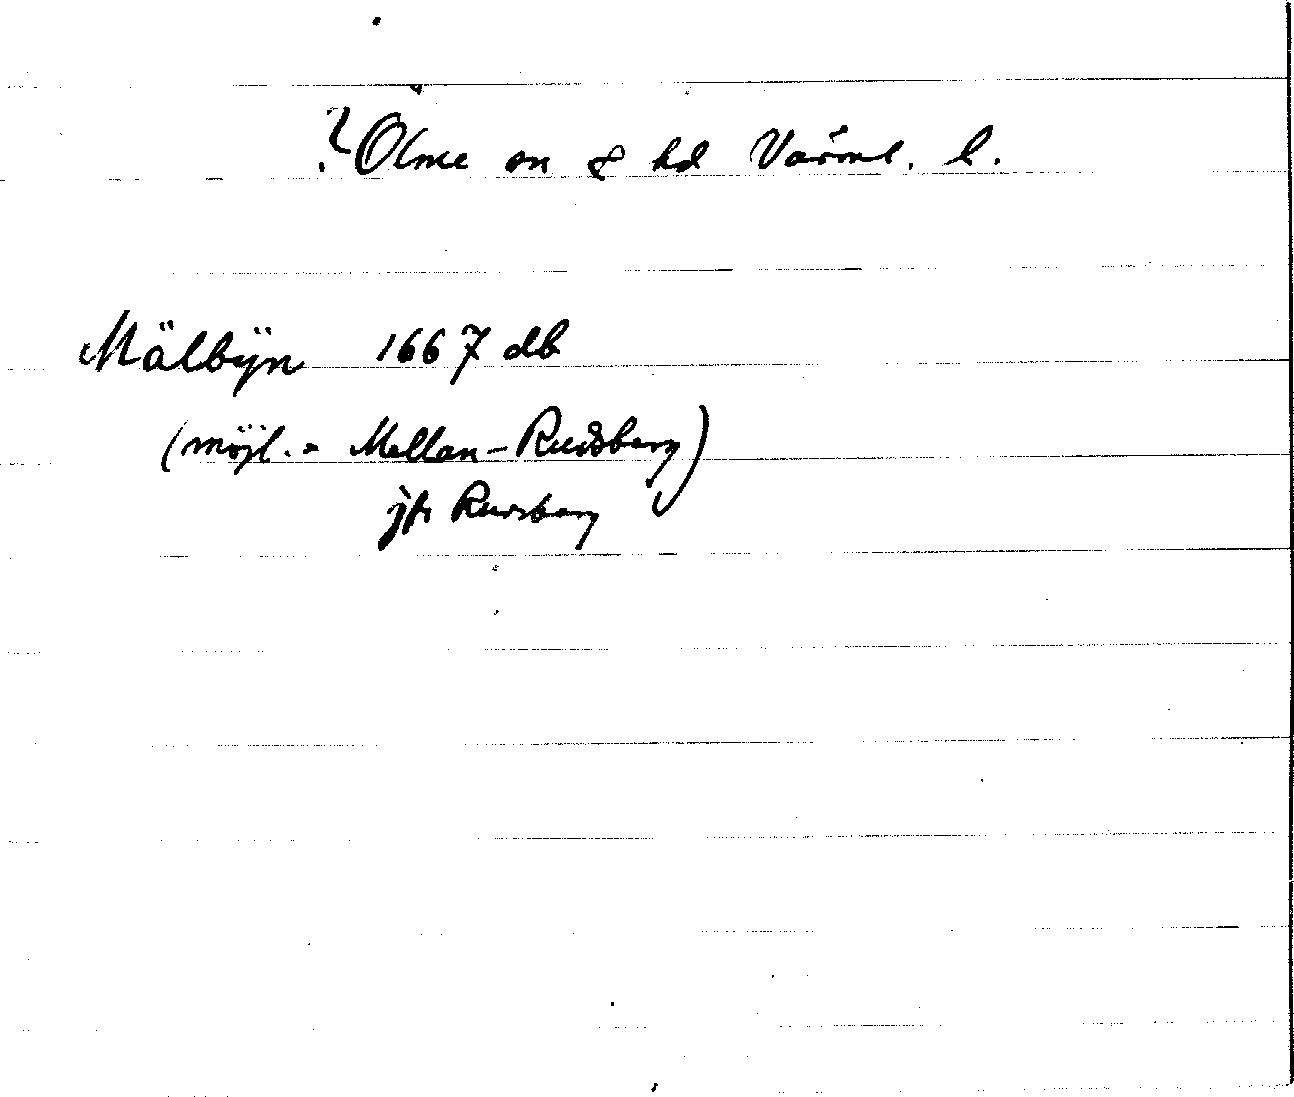 ? Ölme sn & hd Värml. l.
Mälbÿn 1667 db
(möjl. = Mellan-Rudsberg)
jfr Rudsberg